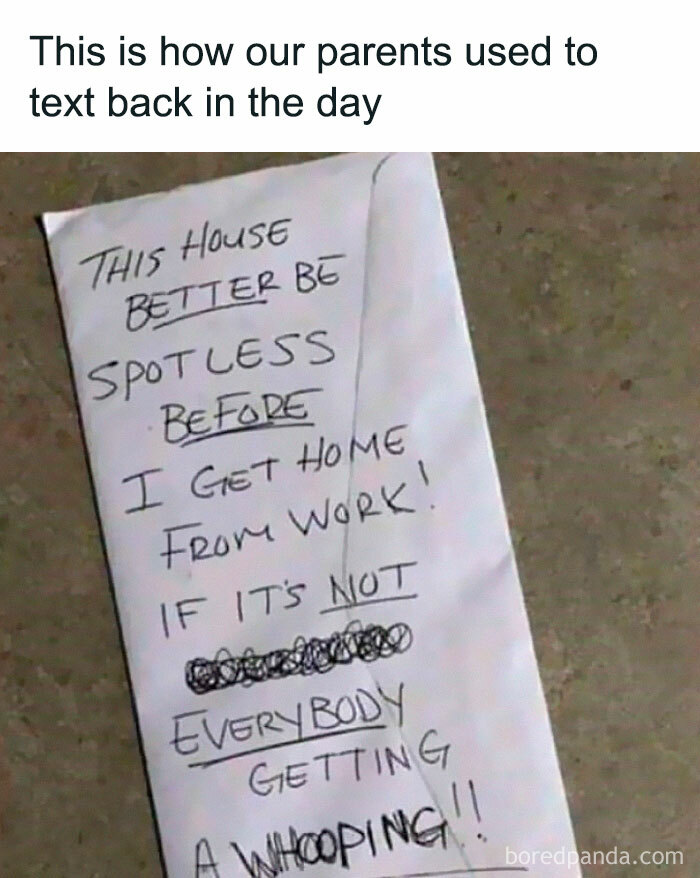 This is how our parents used to
text back in the day
THIS HOUSE
BETTER BE
SPOTLESS
BEFORE
I GET HOME
FROM WORK!
IF IT'S NOT
EVERYBODY
GETTING
A WHOOPING!!
boredpanda.com